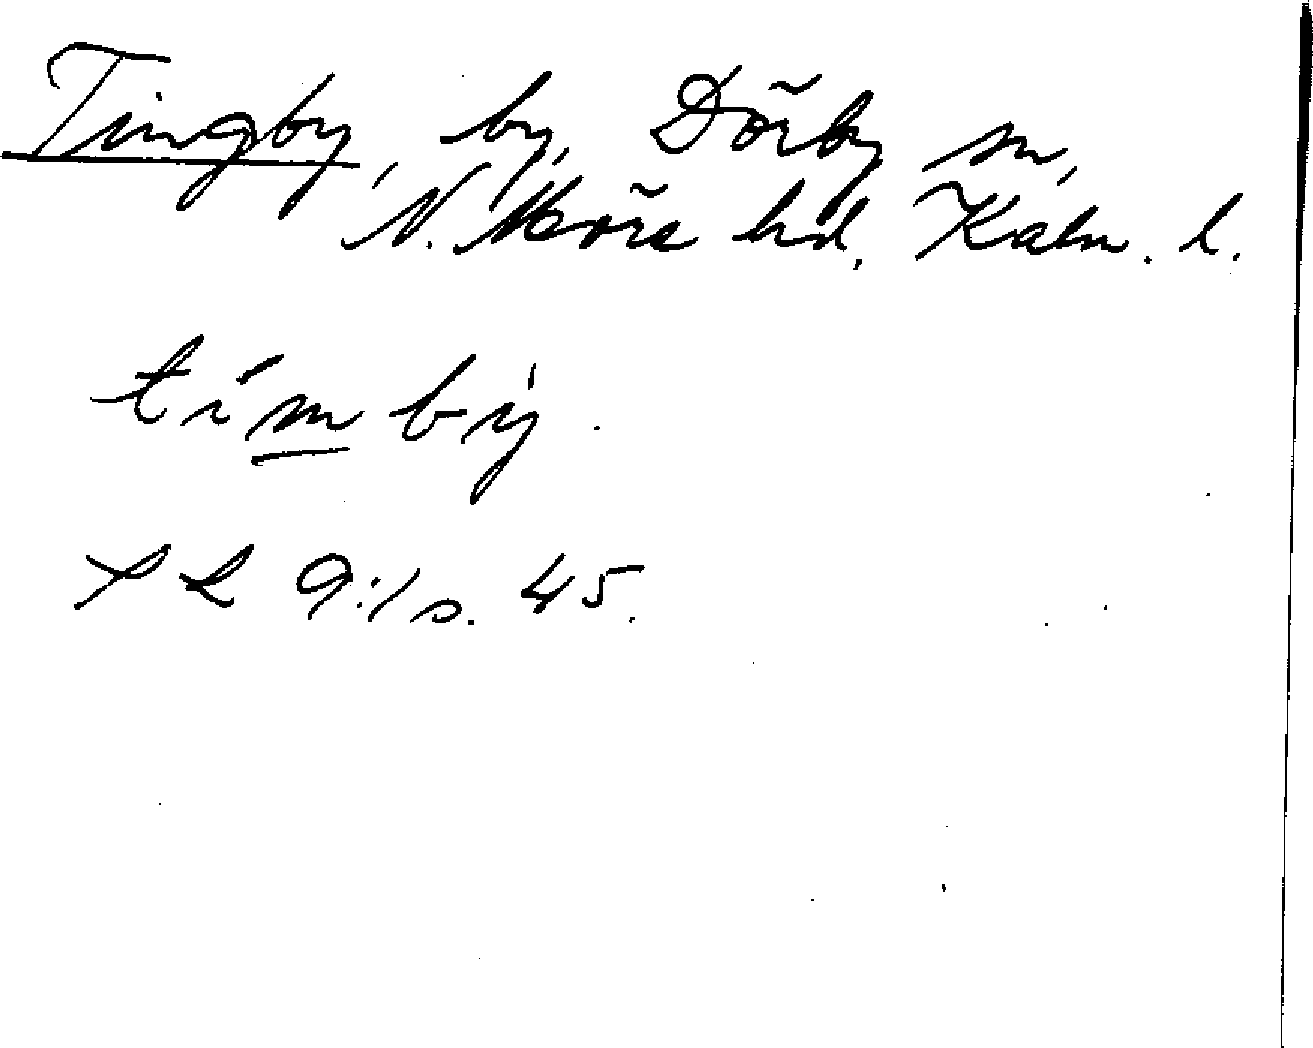 Tingby, by, Dörby sn,
N. Möre hd, Kalm. l.
tímbẏ.
SL 9:1 s. 45.